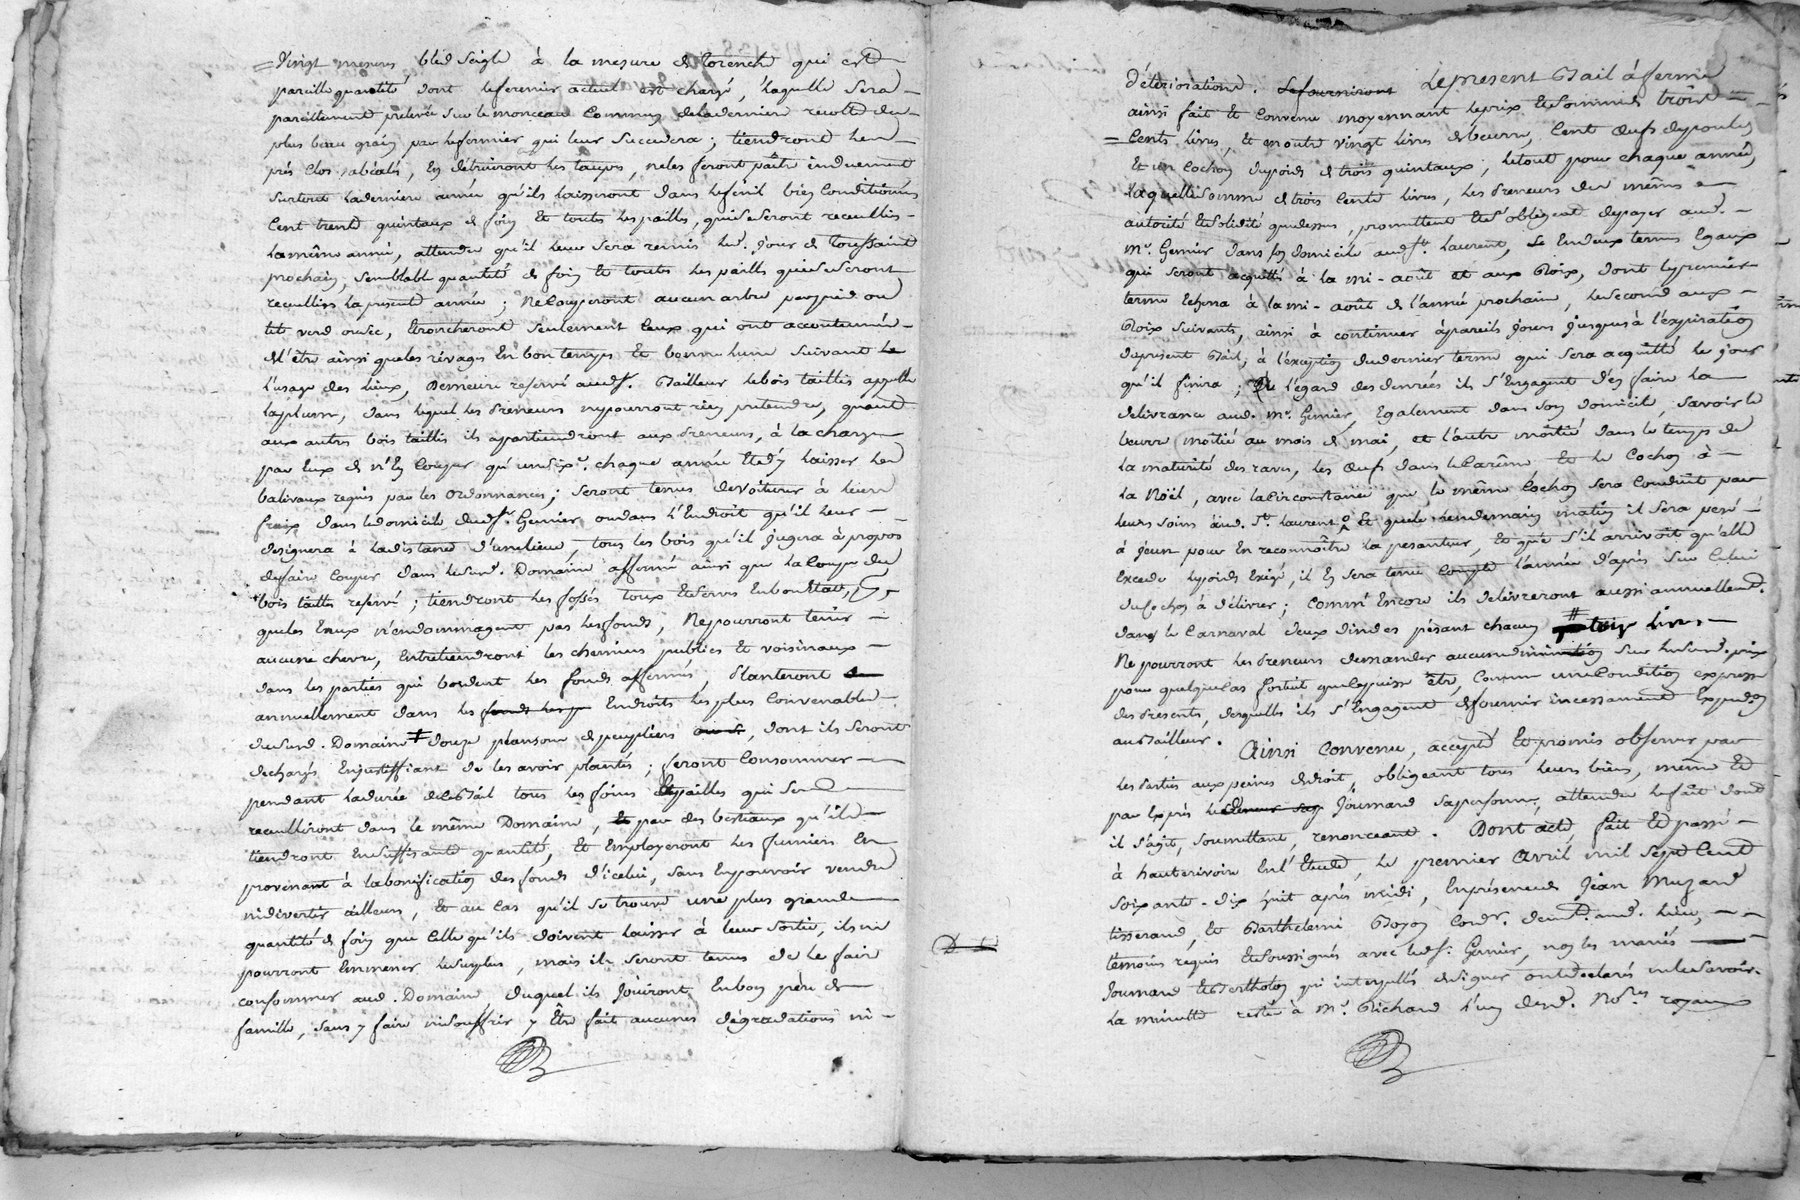 =Vingt mesures bled seigle à la mesure de qui est
pareille quantité dont le fermier actuel est chargé, laquelle sera
pareillement prelevée sur le monceau commun de la derniere recolte du
plus beau grain par le fermier qui leur succedera ; tiendront les
prés clos, abéalés, en détruiront les taupes, ne les feront paître induement
surtout la derniere année qu'ils laisseront dans le fénil bien conditionnés
Cent trente quintaux de foin et toutes les pailles, qui se seront recueillis
la même année, attendu qu'il leur sera remis led. jour de Toussaint
prochain, semblable quantité de foin et toutes les pailles qui se seront
recueillies la presente année ; Ne couperont aucun arbre par pied ou
tête verd ou sec, etroncheront seulement ceux qui ont accoutumé
de l'être ainsi que les rivages en bon temps et bonne lune suivant le
l'usage des lieux, Demeure reservé aud. sr. Bailleur le bois taillis appellé
laplum, dans lequel les Preneurs ne pourront rien pretendre, quant
aux autres bois taillis ils apartiendront aux Preneurs, à la charge
par eux de n'en couper qu'un dixe. chaque année et d'y laisser les
balivaux requis par les ordonnances ; seront tenus de voiturer à leurs
fraix dans le domicile dud. sr. Gemier ou dans l'endroit qu'il leur
designera à la distance d'une lieue, tous les bois qu'il jugera à propos
de faire couper dans le susd. Domaine affermé ainsi que la coupe du
bois taillis reservé ; tiendront les fossés toux et serves en bon état,
que les eaux n'endommagent pas les fonds, Ne pourront tenir
aucune chevre, Entretiendront les chemins publics et voisinaux
dans les parties qui bordent les fonds affermés, Planteront
annuellement dans les fonds les p Endroits les plus convenables
du susd. Domaine ‡ douze plansons de peupliers, dont ils seront
dechargés En justiffiant de les avoir plantés ; feront consommer
pendant la durée de ce Bail tous les foins et pailles qui se
recueilliront dans le même Domaine, et par des bestiaux qu'ils
tiendront en suffisante quantité, et employeront les fumiers en
provenant à la bonification des fonds d'icelui, sans en pouvoir vendre
ni divertir ailleurs, et au cas qu'il se trouve une plus grande
quantité de foin que celle qu'ils doivent laisser à leur sortie, ils ne
pourront emmener le surplus, mais ils seront tenus de le faire
consommer aud. Domaine, duquel ils jouiront en bon père de
famille, sans y faire ni souffrir y être fait aucunes dégradations ni
détériorations. Se fourniront Le present Bail à ferme
ainsi fait et convenu moyennant le prix et somme de trois
=Cents livres, et en outre vingt livres de beurre, cent œufs de poules
et un cochon du poids de trois quintaux, le tout pour chaque année,
laquelle somme de trois cents livres, les Preneurs de même
autorité et solidité que dessus, promettent et s'obligent de payer aud.
Mr. Gemier dans son domicile aud. St. Laurent, en deux termes égaux
qui seront acquittés à la mi-août et aux Roix, dont le premier
terme echerra à la mi-août de l'année prochaine, le second aux
Roix suivants, ainsi à continuer à pareils jours jusques à l'expiration
du present Bail, à l'exception du dernier terme qui sera acquitté le jour
qu'il finira ; à l'égard des denrées ils s'engagent d'en faire la
delivrance aud. Mr. Gemier, également dans son domicile, savoir le
beurre moitié au mois de mai, et l'autre moitié dans le temps de
la maturité des raves, les œufs dans le carême, et le cochon à
la Noël, avec la circonstance que le même cochon sera conduit par
leurs soins aud. St. Laurent, et que le lendemain matin il sera pesé
à jeun pour en reconnoître la pesanteur, et que s'il arrivoit qu'elle
excede le poids exigé, il en sera tenu compte l'année d'après sur celui
du cochon à délivrer ; comm' encore ils delivreront aussi annuellemt.
dans le carnaval deux dindes pésant chacun # livres
Ne pourront les Preneurs demander aucune diminution sur le susd. prix
pour quelque cas fortuit que ce puisse être comme une condition expresse
des Presents, desquelles ils s'engagent de fournir incessamment Expedon.
au Bailleur. Ainsi convenu, accepté et promis observer par
les Parties aux peines de droit, obligeant tous leurs biens, même et
par Exprès Joumard sa personne, attendu le fait dont
il s'agit, soumettant, renonceant. Dont acte, fait et passé
à hauterivoire en l'Etude, le premier avril mil sept cent
soixante-dix huit après midi, En présence de Jean Muzard
tisserand, et Barthelemi Boyon cordr. demt. aud. lieu,
témoins requis et soussignés avec led. sr. Gemier, non les mariés
Joumard et Bertholon qui interpellés de signer ont declarés ne le savoir.
La minutte restée à Me. Richard l'un desd. Nores. royaux